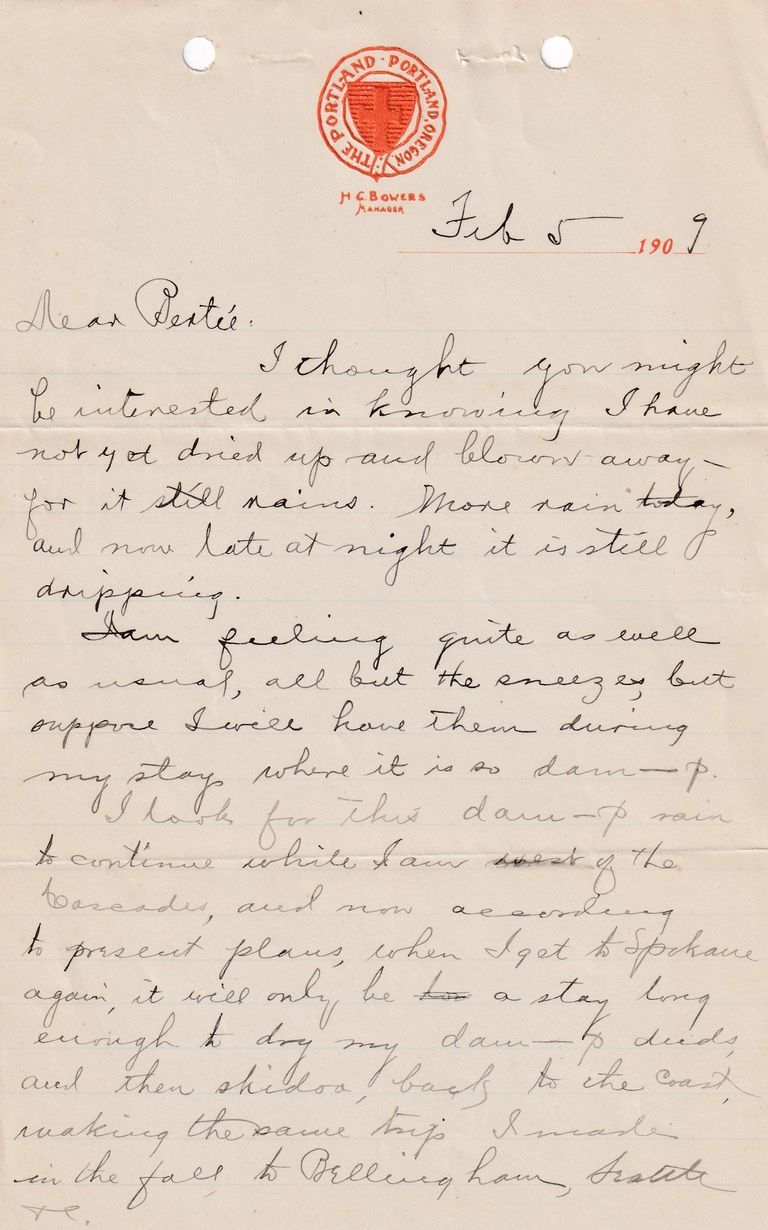 THE PORTLAND · PORTLAND, OREGON
H. C. BOWERS
MANAGER
Feb 5 1909
Dear Bertie:
I thought you might
be interested in knowing I have
not yet dried up and blown away—
for it still rains. More rain today,
and now late at night it is still
dripping.
I am feeling quite as well
as usual, all but the sneezes, but
suppose I will have them during
my stay where it is so dam—p.
I look for this dam—p rain
to continue while I am west of the
Cascades, and now according
to present plans, when I get to Spokane
again, it will only be a stay long
enough to dry my dam—p duds,
and then skidoo, back to the coast,
making the same trip I made
in the fall, to Bellingham, Seattle